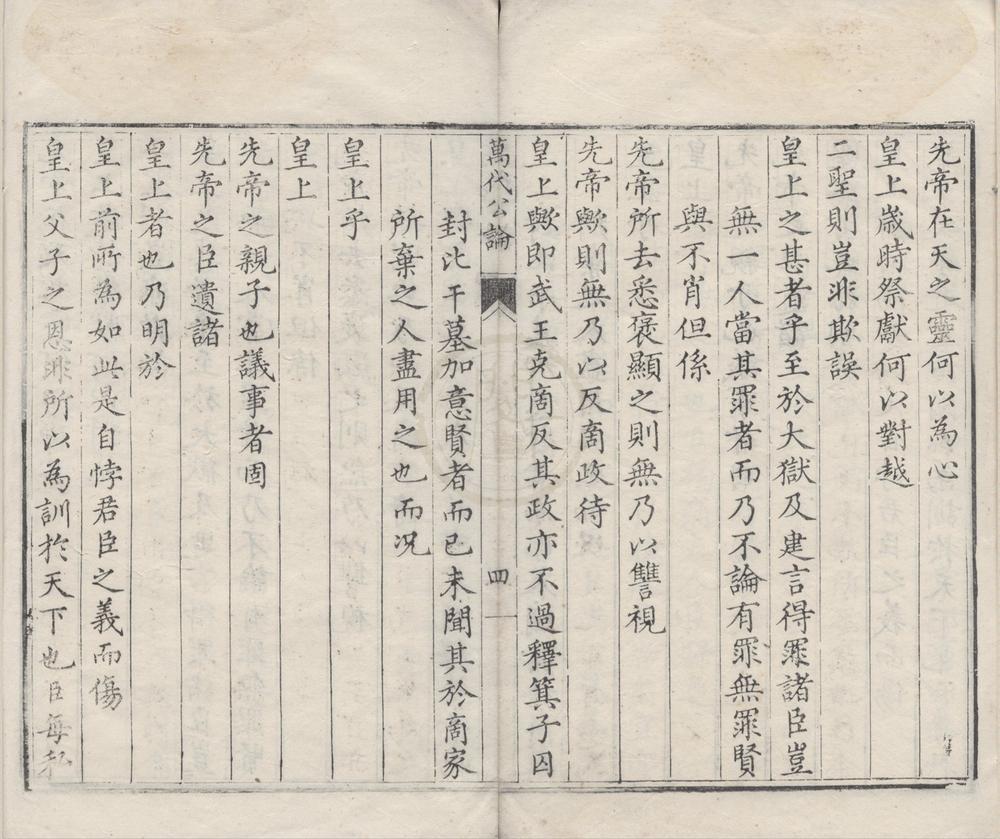 先帝在天之靈何以為心
皇上歲時祭獻何以對越
二聖則豈非欺誤
皇上之甚者乎至於大獄及建言得罪諸臣豈
無一人當其罪者而乃不論有罪無罪賢
與不肖但係
先帝所去悉褒顯之則無乃以讐視
先帝歟則無乃以反商政待
皇上歟即武王克商反其政亦不過釋箕子囚
萬代公論 四
封比干墓加意賢者而已未聞其於商家
所棄之人盡用之也而况
皇上乎
皇上
先帝之親子也議事者固
先帝之臣遺諸
皇上者也乃明於
皇上前所為如此是自悖君臣之義而傷
皇上父子之恩非所以為訓於天下也臣每私